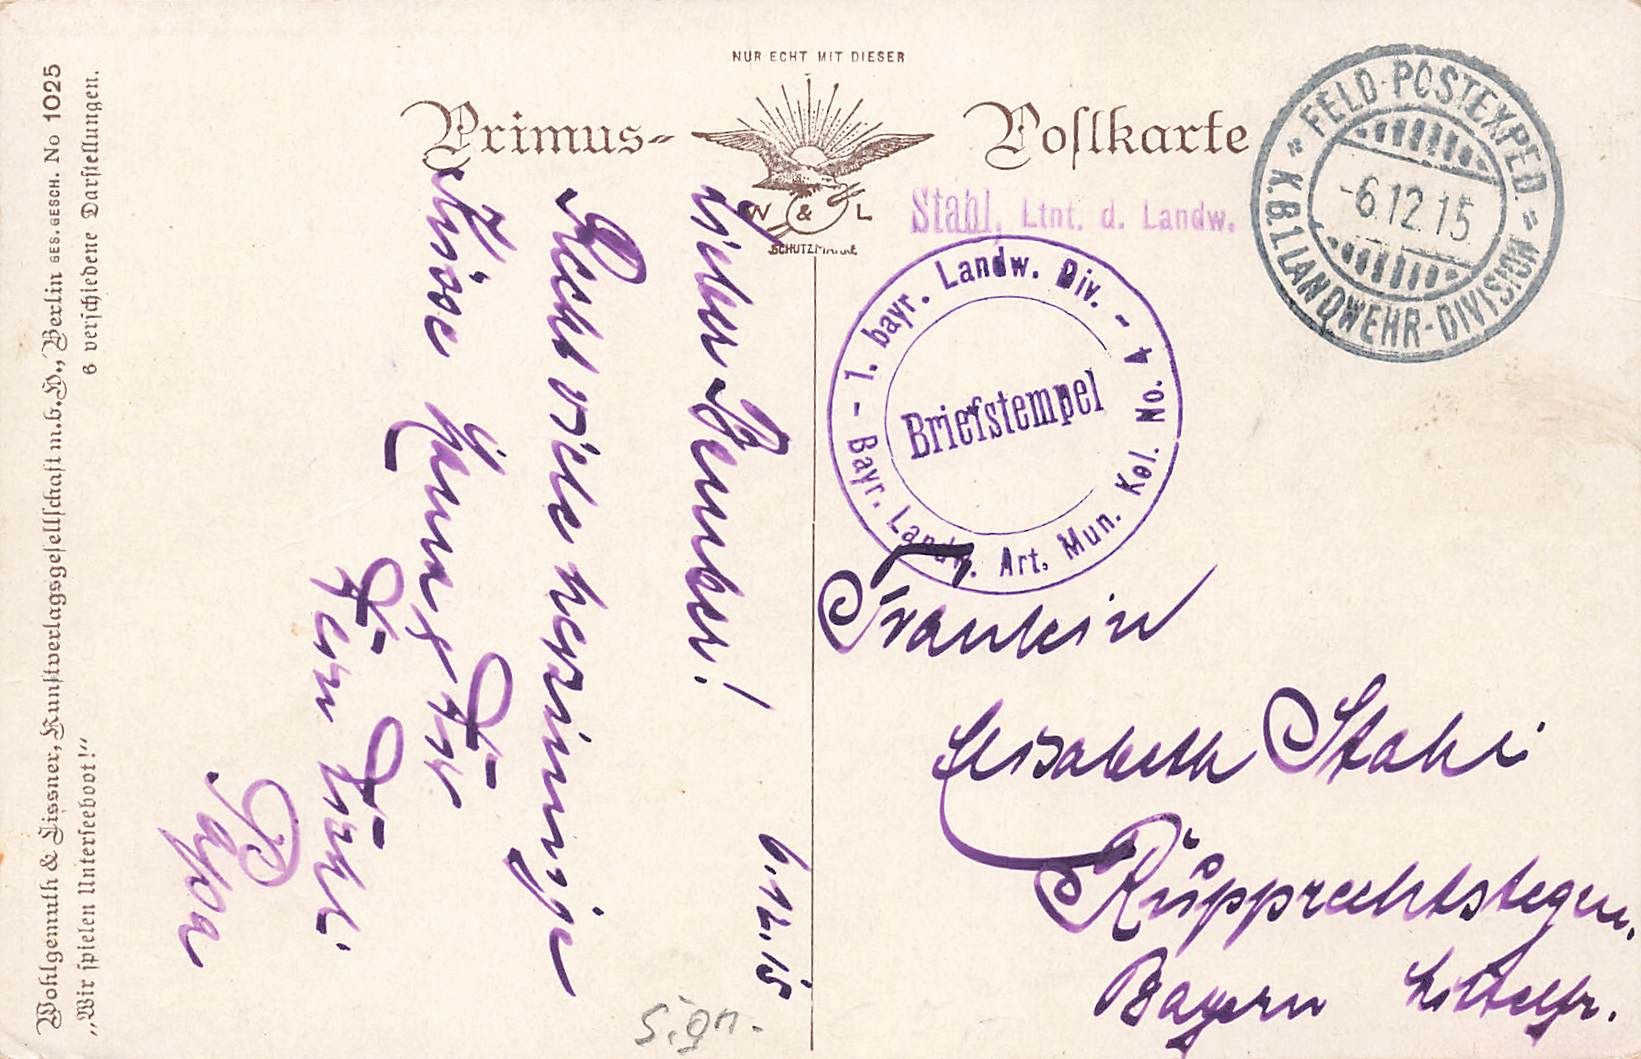 NUR ECHT MIT DIESER
Primus-
Postkarte
W & L
SCHUTZMARKE
Wohlgemuth & Lissner, Kunstverlagsgesellschaft m.b.H., Berlin GES.GESCH. No 1025
„Wir spielen Unterseeboot!"
6 verschiedene Darstellungen.
Stahl, Ltnt. d. Landw.
FELD-POSTEXPED
-6.12.15
K.B.1.LANDWEHR-DIVISION
1. bayr. Landw. Div. -
Briefstempel
Bayr. Landw. Art. Mun. Kol. No. 4
6.12.15
Recht viele
Küsse
Papa
Fräulein
Elisabeth Stahl
Rupprechtstegen.
Bayern Mittelfr.
sign.